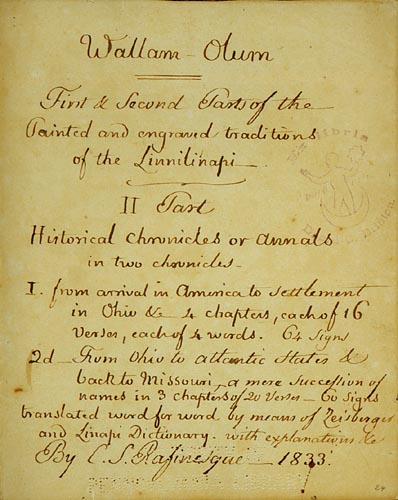 Wallam-Olum
First & Second Parts of the
Painted and engraved traditions
of the Linnilinapi
II Part
Historical chronicles or annals
in two chronicles-
I. from arrival in America to settlement
in Ohio &c 4 chapters, each of 16
Verses, each of 4 words. 64 signs
2d From Ohio to atlantic States &
back to Missouri, a mere succession of
names in 3 chapters of 20 Verses — 60 signs
translated word for word by means of Zeisberger
and Linapi Dictionary. with explanations &c
By C. S. Rafinesque — 1833.
Ex Libris